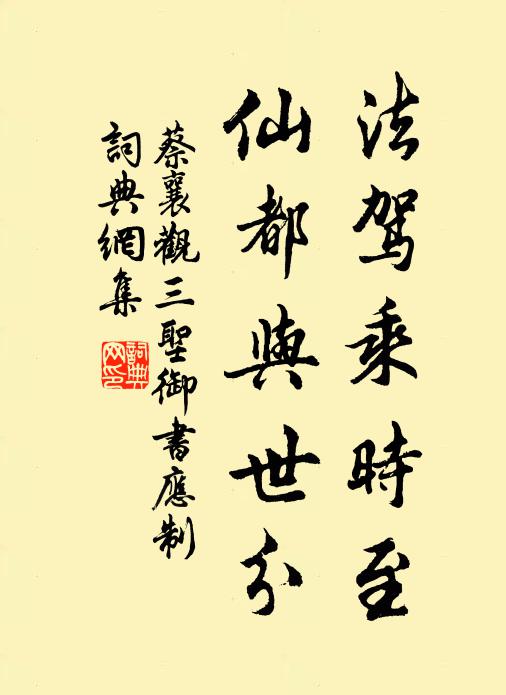 法駕乘時至
仙都與世分
蔡襄觀三聖御書應制
詞典網集
詞典网印